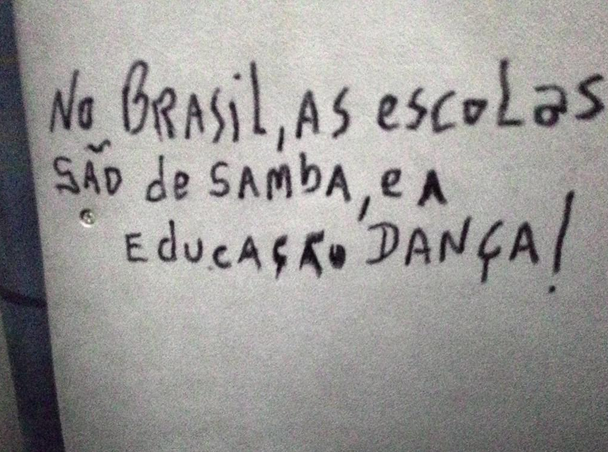 No BRASiL, AS escoLas
SÃO de SAMbA, e A
EducAÇÃo DANÇA!